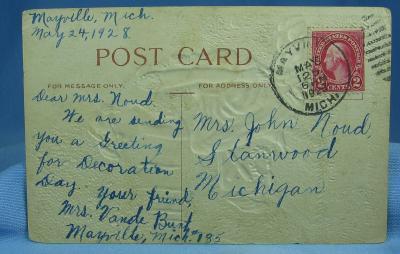 Mayville, Mich.
May 24, 1928
POST CARD
FOR MESSAGE ONLY.
FOR ADDRESS ONLY.
Dear Mrs. Noud,
We are sending
you a Greeting
for Decoration
Day. Your friend,
Mrs. Vande Bunt
Mayville, Mich.
Mrs. John Noud,
Stanwood
Michigan
MAYVILLE
MAY
MICH.
2 CENTS 2